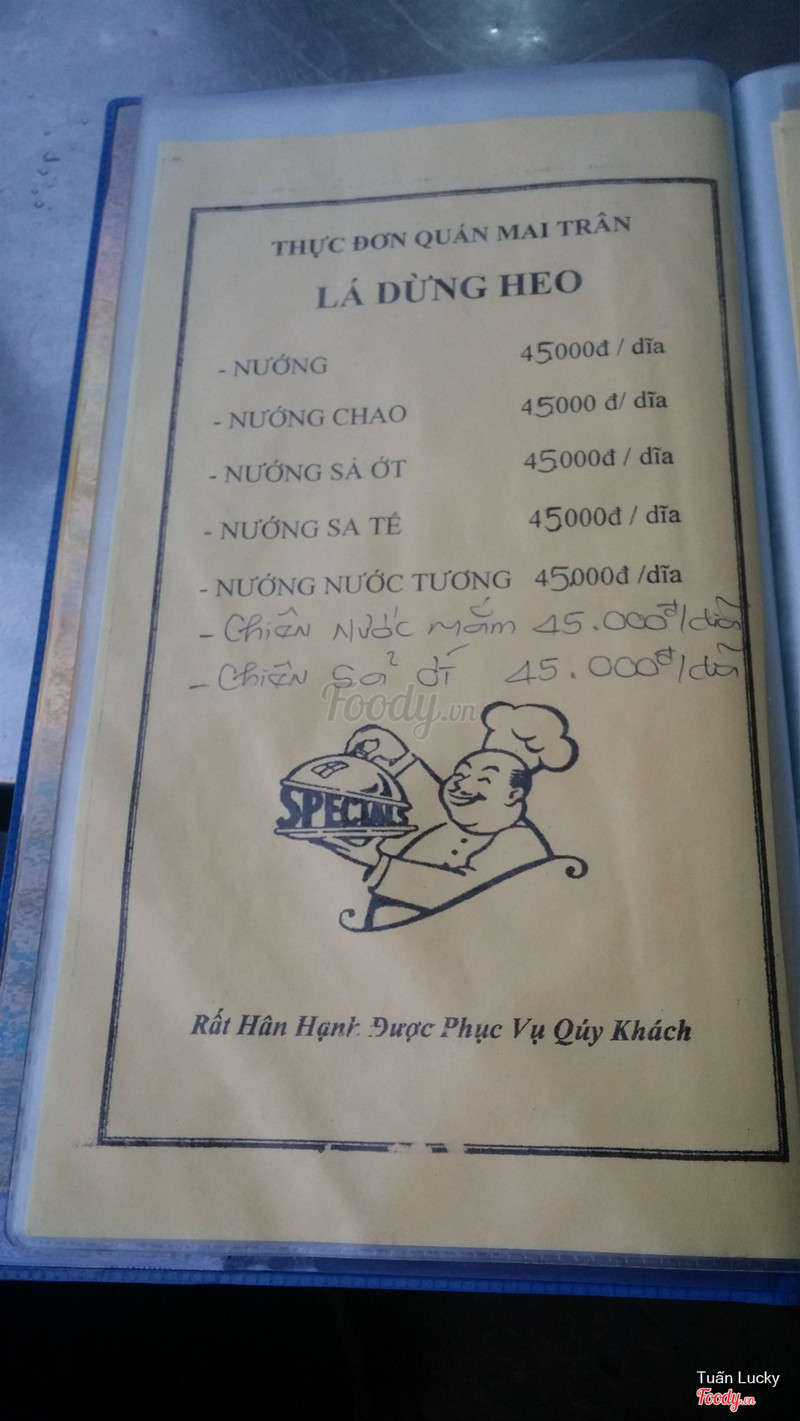 THỰC ĐƠN QUÁN MAI TRÂN
LÁ DỪNG HEO
- NƯỚNG 45000đ / dĩa
- NƯỚNG CHAO 45000 đ/ dĩa
- NƯỚNG SẢ ỚT 45000đ / dĩa
- NƯỚNG SA TẾ 45000đ / dĩa
- NƯỚNG NƯỚC TƯƠNG 45.000đ /dĩa
- Chiên Nước mắm 45.000đ/dĩa
- Chiên Sả 45.000đ/dĩa
Foody.vn
SPECIALS
Rất Hân Hạnh Được Phục Vụ Qúy Khách
Tuấn Lucky
Foody.vn